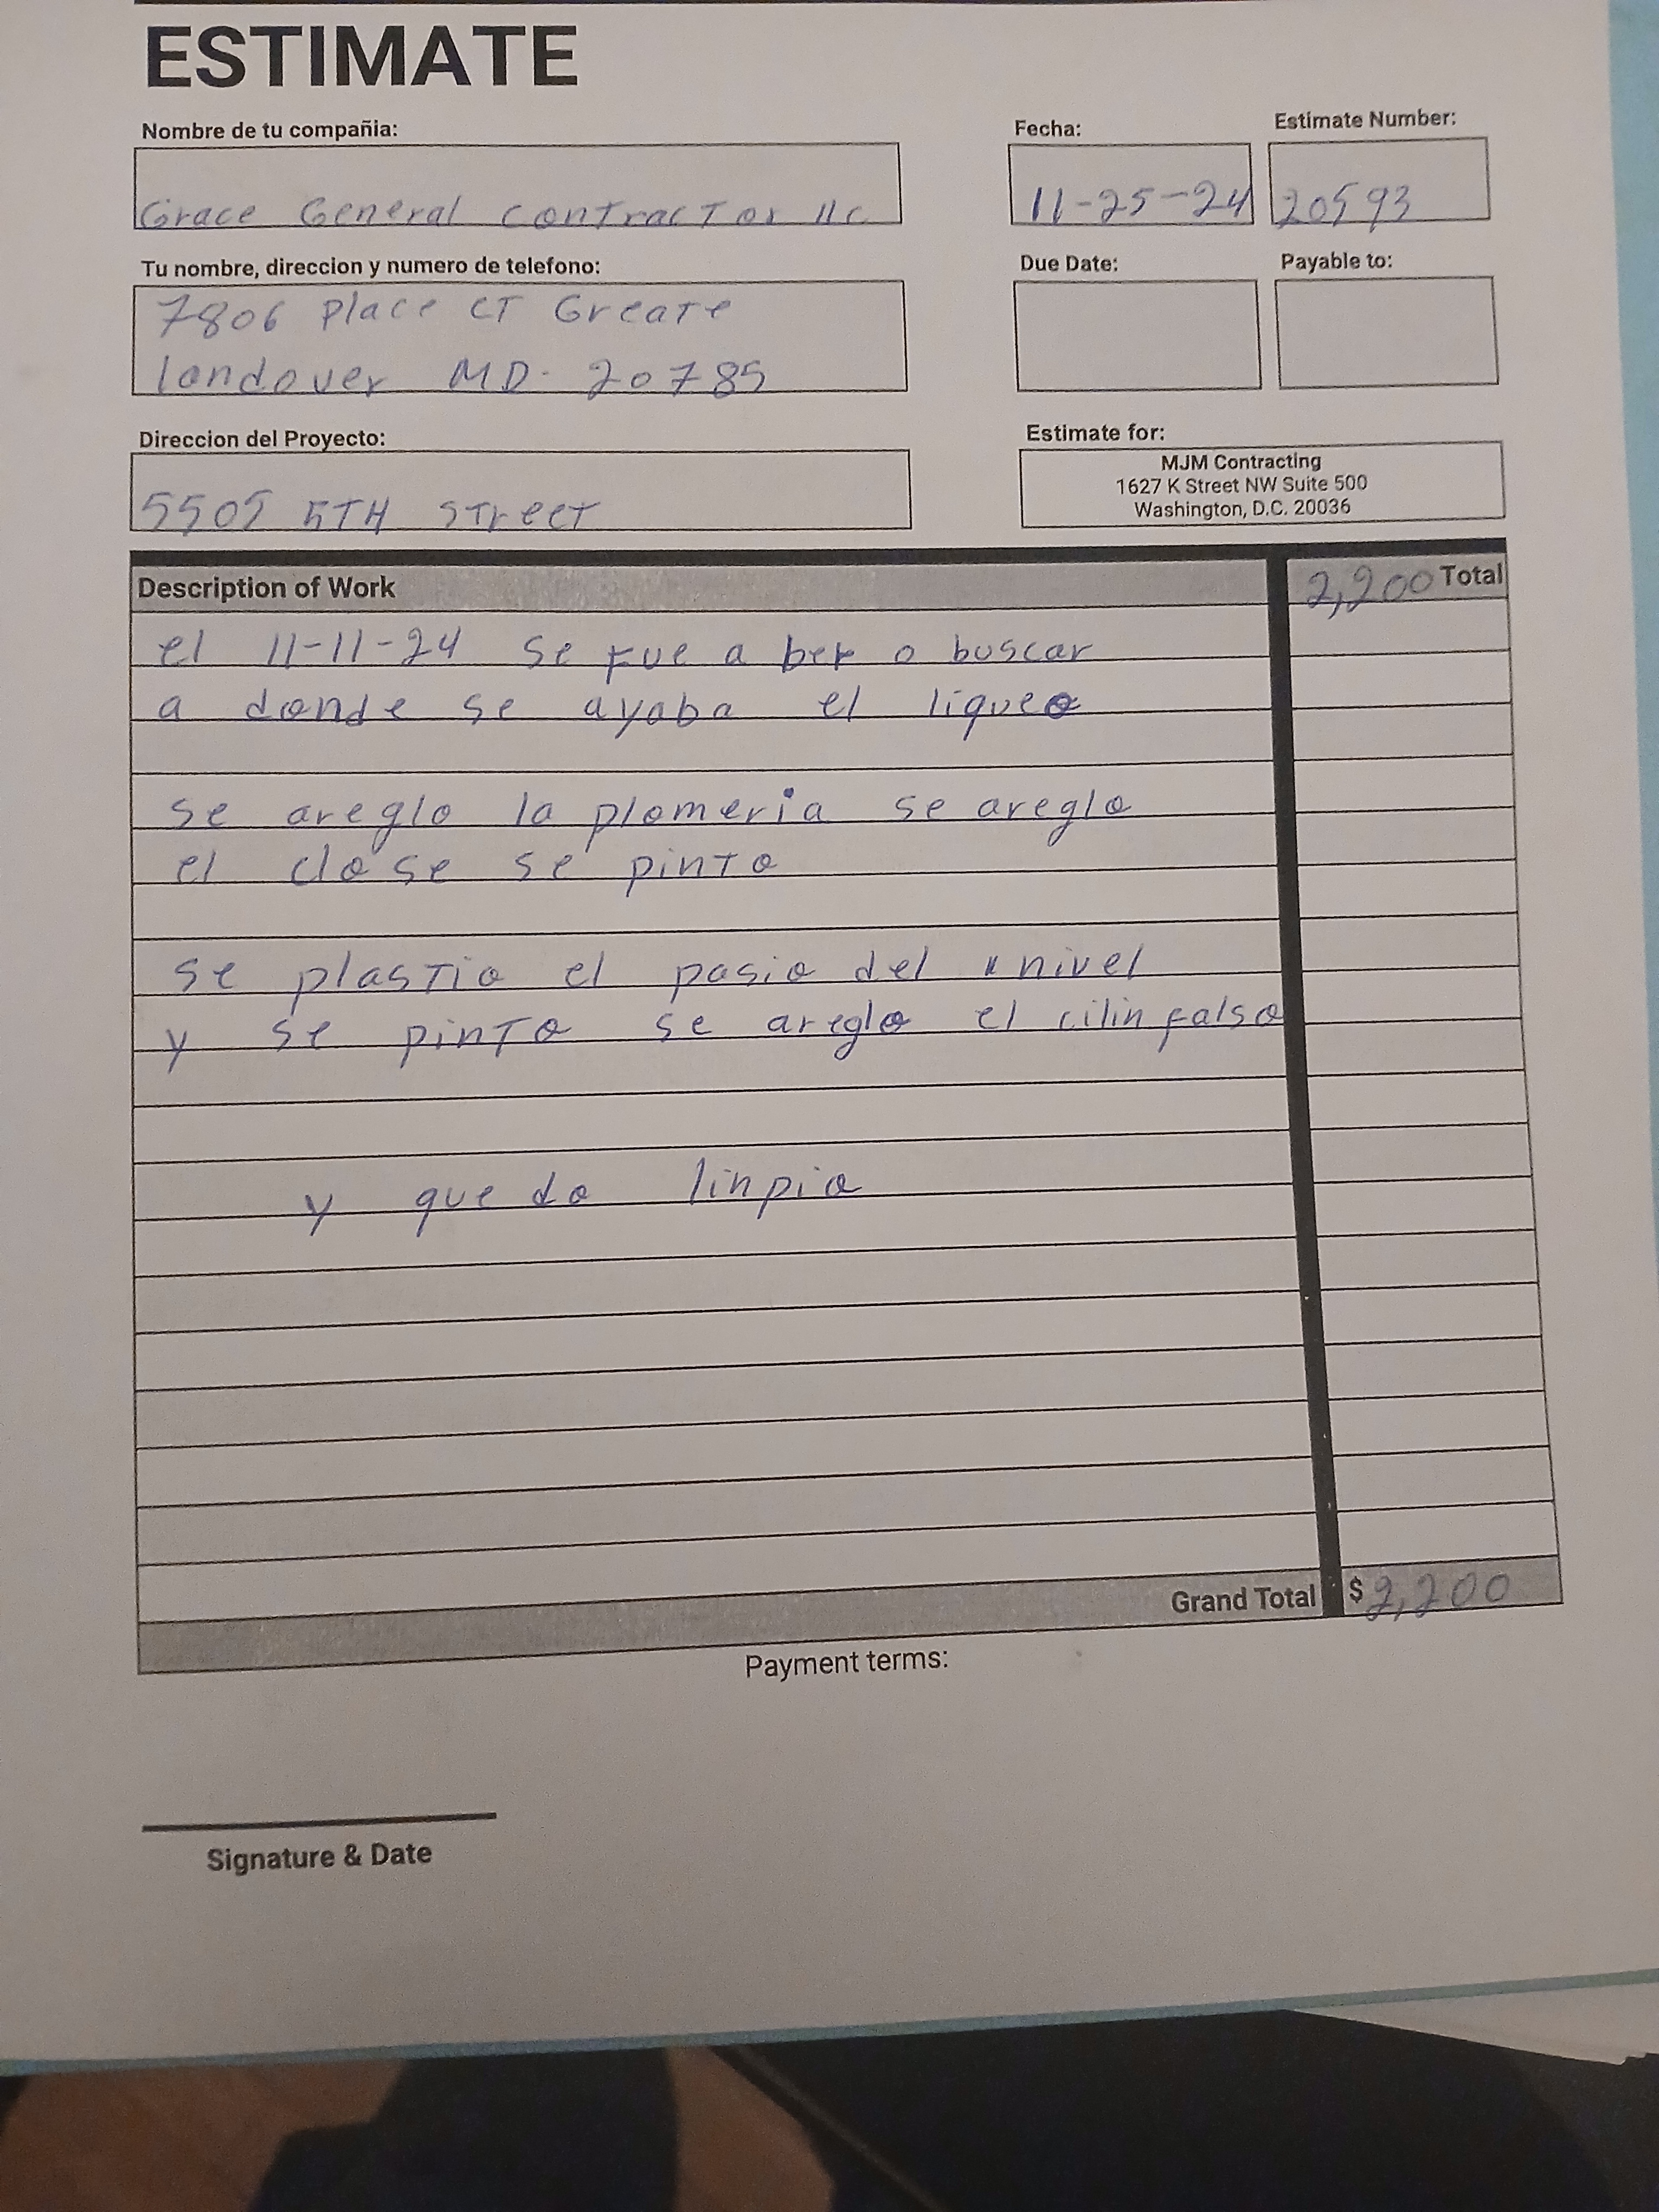 ESTIMATE
Nombre de tu compañia:
Grace General contractor llc
Fecha:
11-25-24
Estimate Number:
20593
Tu nombre, direccion y numero de telefono:
7806 Place CT Greate
landover MD. 20785
Due Date:
Payable to:
Direccion del Proyecto:
5505 5TH STreet
Estimate for:
MJM Contracting
1627 K Street NW Suite 500
Washington, D.C. 20036
Description of Work
2,200 Total
el 11-11-24 se fue a ber o buscar
a donde se ayaba el liqueo
se areglo la plomeria se areglo
el close se pinto
se plastio el pasio del nivel
y se pinto se areglo el cilin falso
y quedo linpio
Grand Total $ 2,200
Payment terms:
Signature & Date